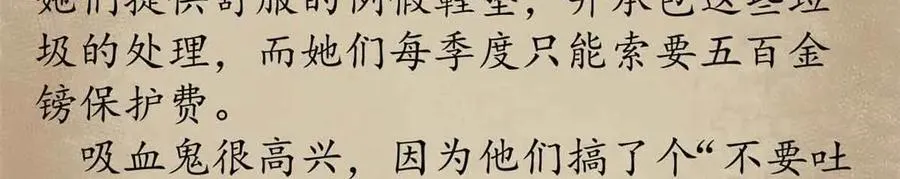 她们提供舒服的例假鞋垫，并承包这些垃
圾的处理，而她们每季度只能索要五百金
镑保护费。
吸血鬼很高兴，因为他们搞了个“不要吐